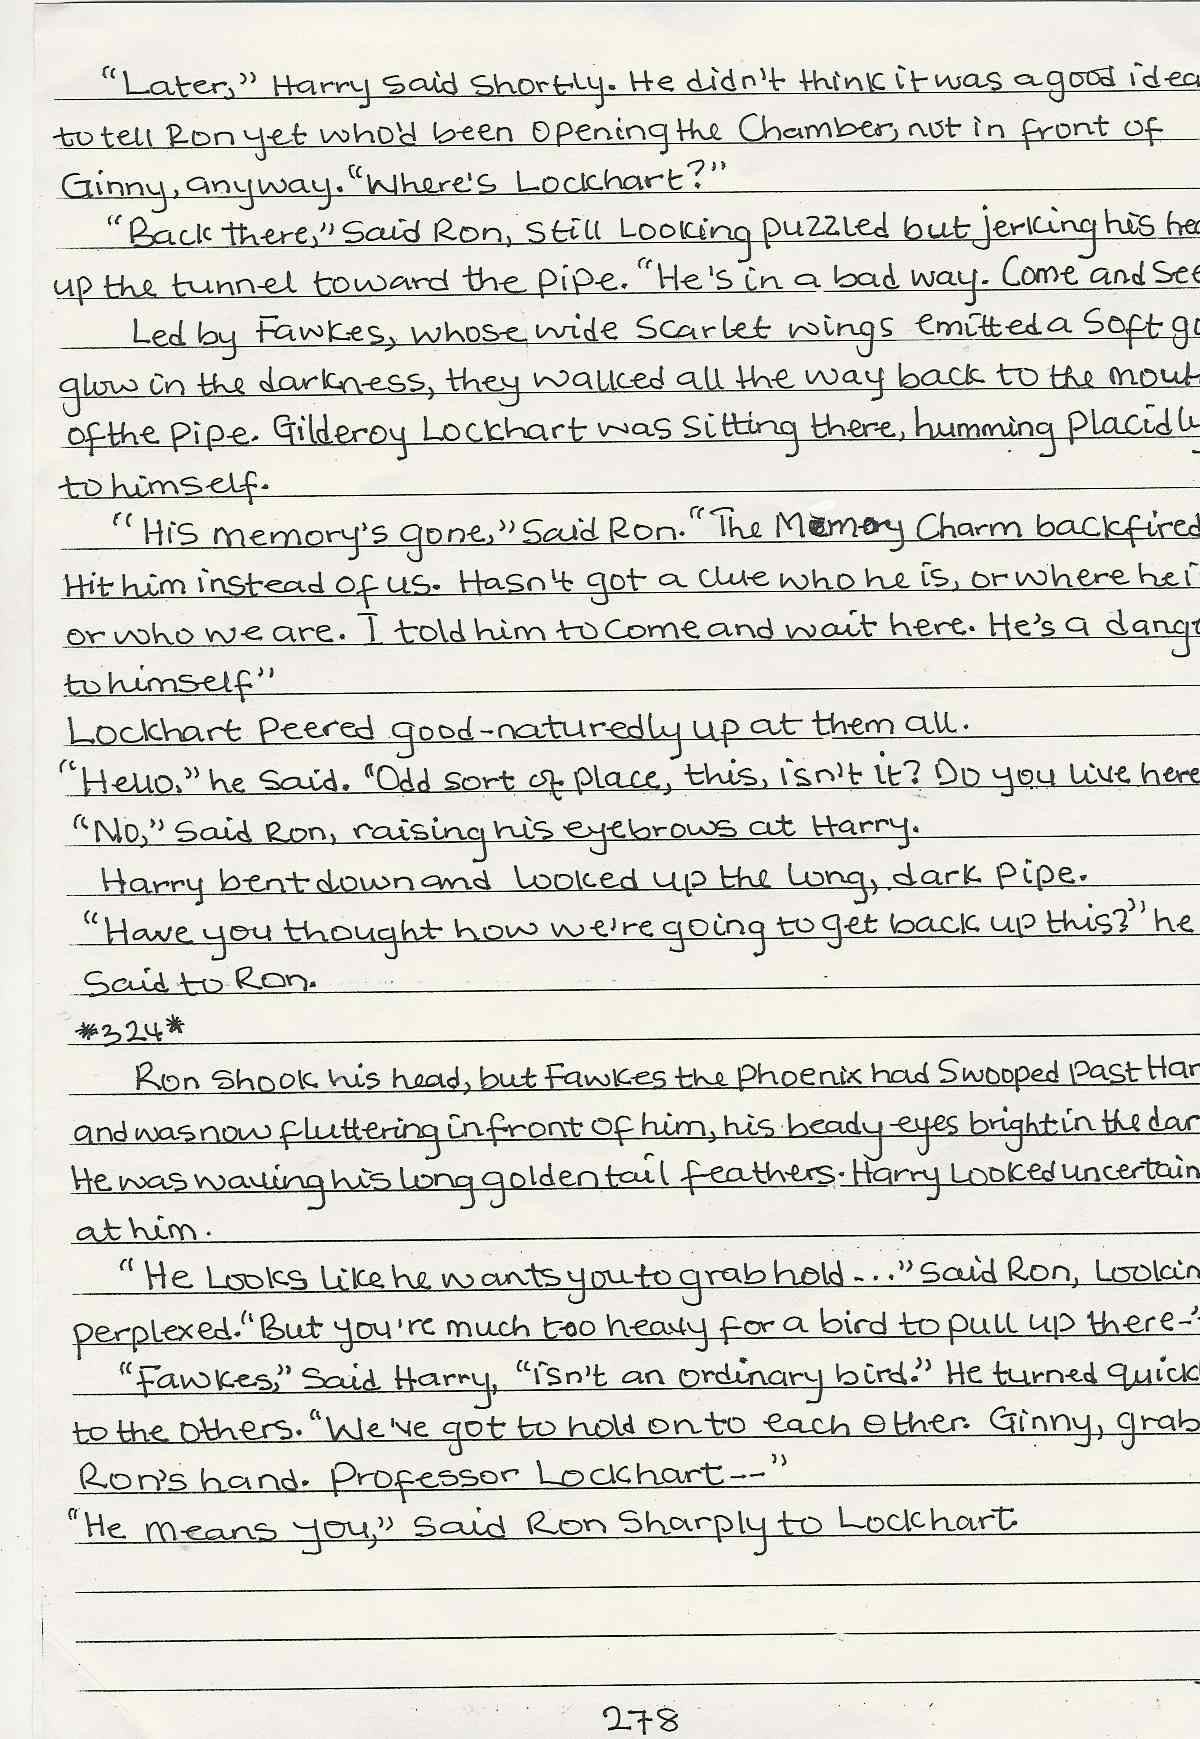 “Later,” Harry said shortly. He didn't think it was a good idea
to tell Ron yet who'd been opening the Chamber, not in front of
Ginny, anyway. “Where's Lockhart?”
“Back there,” said Ron, still looking puzzled but jerking his hea
up the tunnel toward the pipe. “He's in a bad way. Come and see
Led by Fawkes, whose wide scarlet wings emitted a soft go
glow in the darkness, they walked all the way back to the mout
of the pipe. Gilderoy Lockhart was sitting there, humming placidly
to himself.
“His memory's gone,” said Ron. “The Memory Charm backfired
Hit him instead of us. Hasn't got a clue who he is, or where he i
or who we are. I told him to come and wait here. He's a dange
to himself”
Lockhart peered good-naturedly up at them all.
“Hello,” he said. “Odd sort of place, this, isn't it? Do you live here
“No,” said Ron, raising his eyebrows at Harry.
Harry bent down and looked up the long, dark pipe.
“Have you thought how we're going to get back up this?” he
said to Ron.
*324*
Ron shook his head, but Fawkes the phoenix had swooped past Har
and was now fluttering in front of him, his beady eyes bright in the dar
He was waving his long golden tail feathers. Harry looked uncertain
at him.
“He looks like he wants you to grab hold...” said Ron, lookin
perplexed. “But you're much too heavy for a bird to pull up there-”
“Fawkes,” said Harry, “isn't an ordinary bird.” He turned quick
to the others. “We've got to hold on to each other. Ginny, grab
Ron's hand. Professor Lockhart--”
“He means you,” said Ron sharply to Lockhart.
278